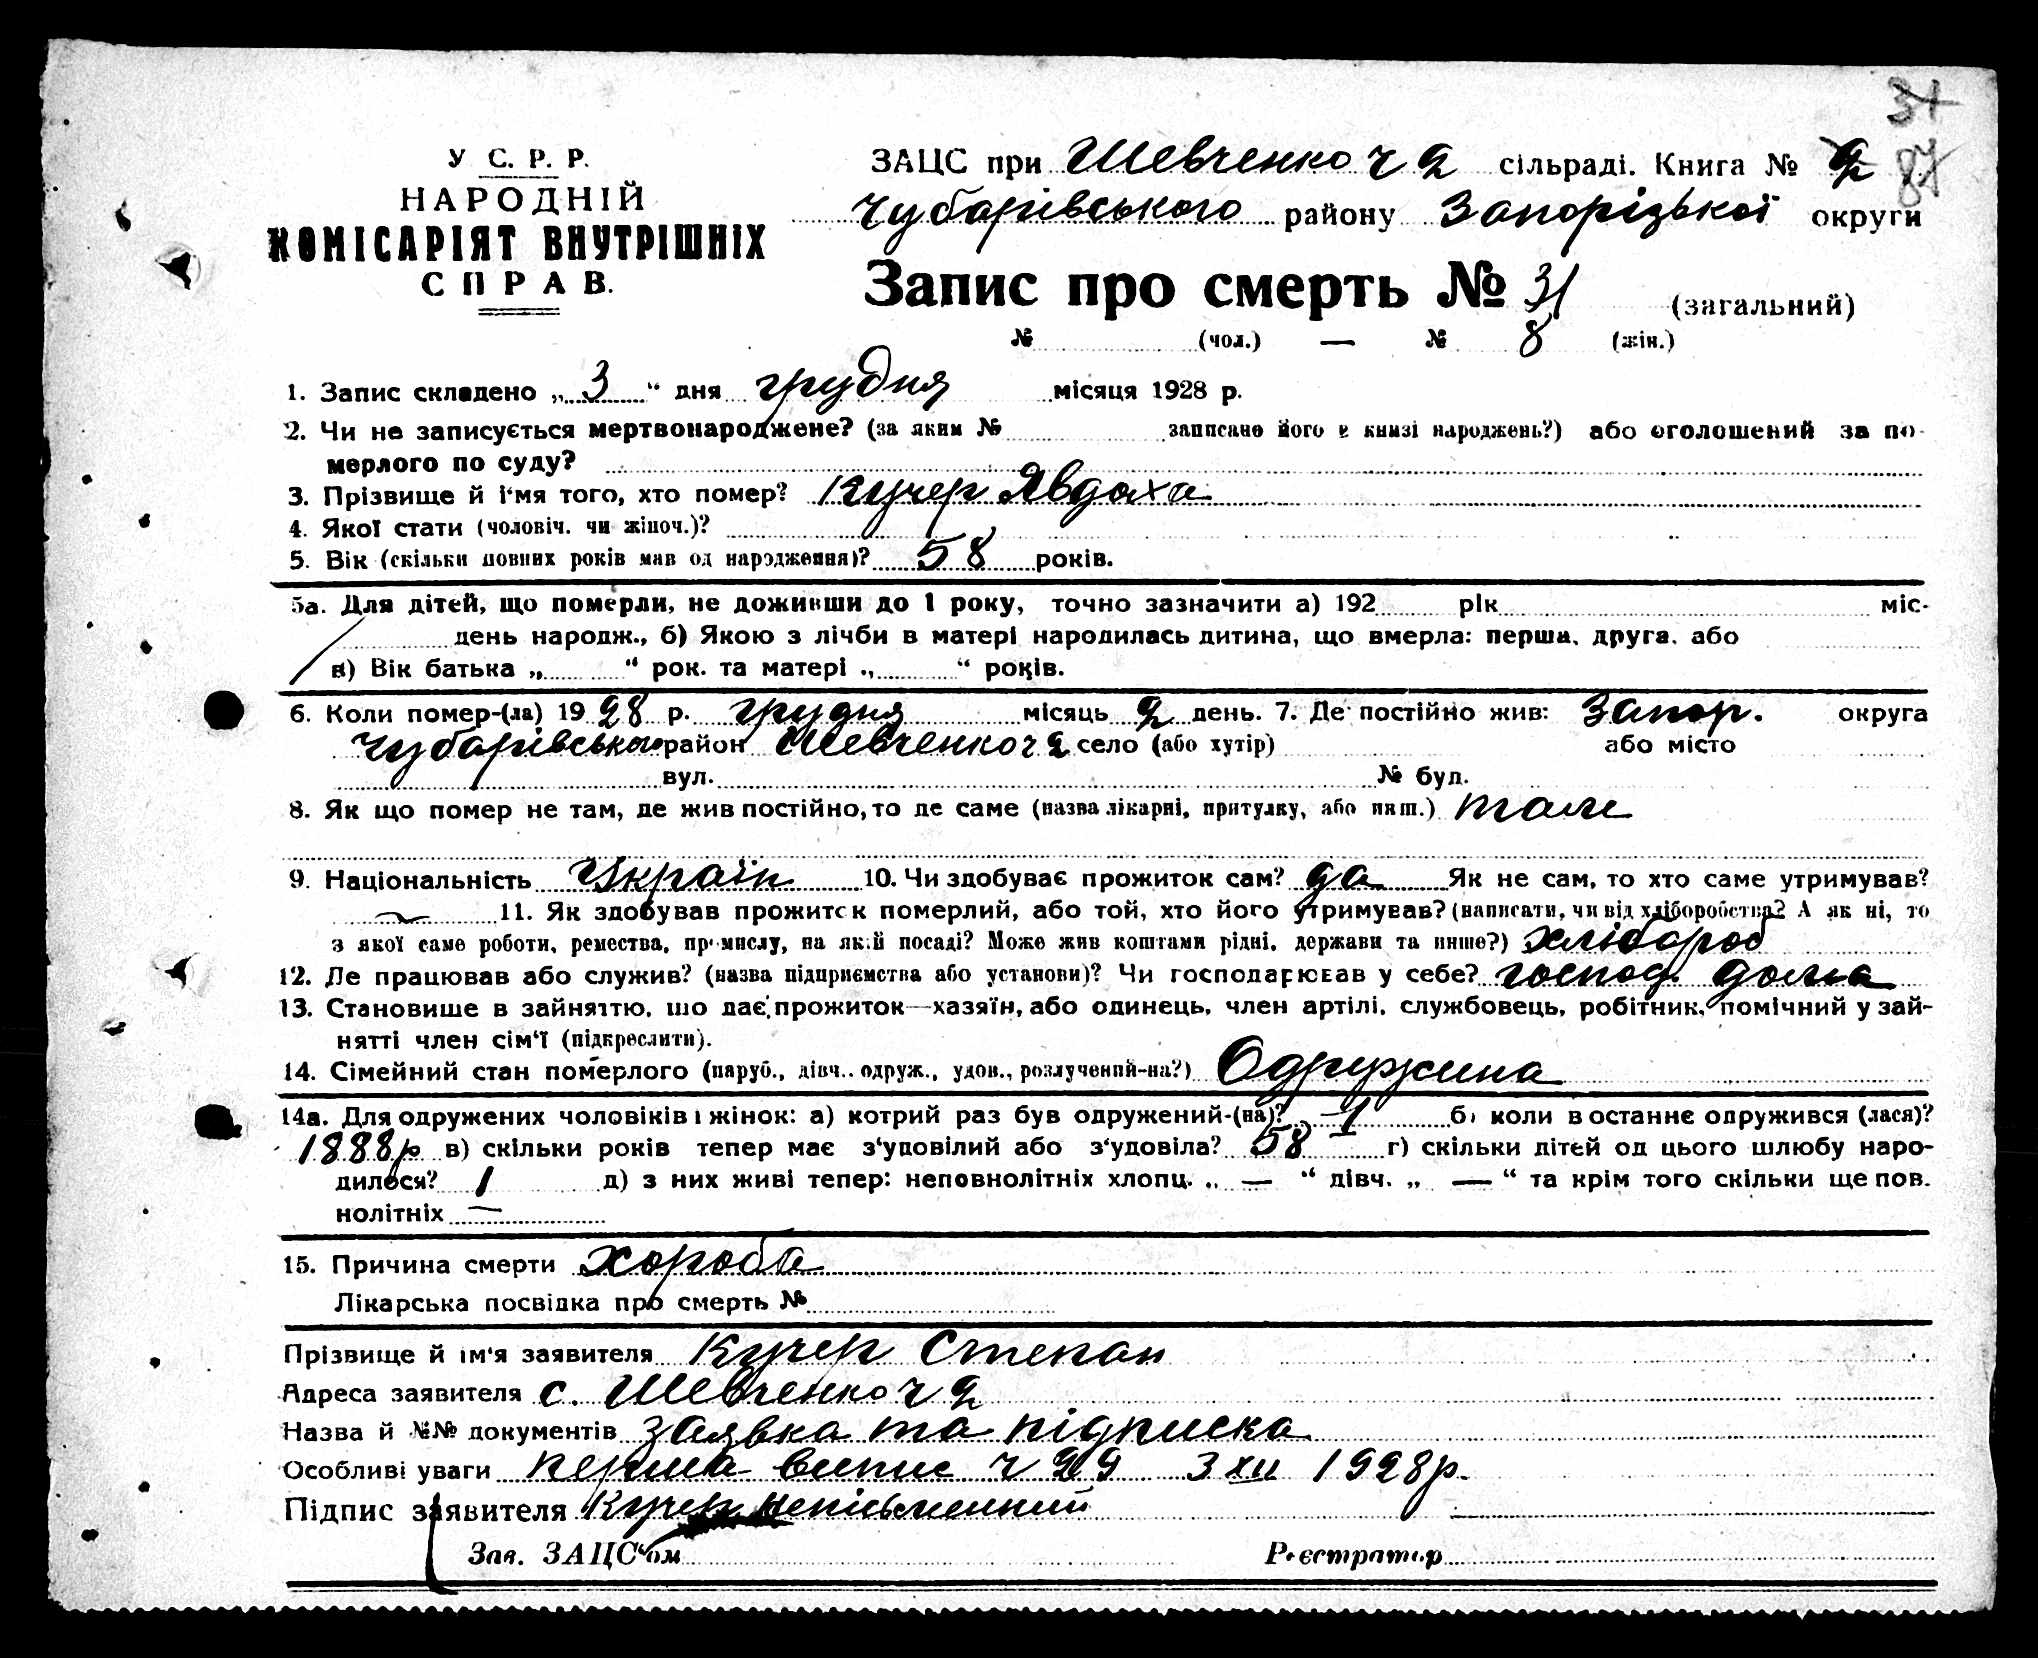 37
87
У С. Р. Р.
НАРОДНІЙ
КОМІСАРІЯТ ВНУТРІШНІХ
СПРАВ.
ЗАЦС при Шевченко ч 2 сільраді. Книга № 2
Чубарівського району Запорізької округи
Запис про смерть № 31 (загальний)
№ (чол.) — № 8 (жін.)
1. Запис складено „ 3 “ дня грудня місяця 1928 р.
2. Чи не записується мертвонароджене? (за яким № записано його в книзі народжень?) або оголошений за по-
мерлого по суду?
3. Прізвище й і'мя того, хто помер? Кучер Явдоха
4. Якої стати (чоловіч. чи жіноч.)?
5. Вік (скільки повних років мав од народження)? 58 років.
5а. Для дітей, що померли, не доживши до 1 року, точно зазначити а) 192 рік міс-
день народж., б) Якою з лічби в матері народилась дитина, що вмерла: перша, друга, або
в) Вік батька „ “ рок. та матері „ “ років.
6. Коли помер-(ла) 1928 р. грудня місяць 2 день. 7. Де постійно жив: Запор. округа
Чубарівського район Шевченко ч 2 село (або хутір) або місто
вул. № буд.
8. Як що помер не там, де жив постійно, то де саме (назва лікарні, притулку, або инш.) там
9. Національність Україн 10. Чи здобуває прожиток сам? да Як не сам, то хто саме утримував?
11. Як здобував прожиток померлий, або той, хто його утримував? (написати, чи від хліборобства? А як ні, то
з якої саме роботи, ремества, промислу, на якій посаді? Може жив коштами рідні, держави та инше?) хлібороб
12. Де працював або служив? (назва підприємства або установи)? Чи господарював у себе? господ. дома
13. Становище в зайняттю, що дає прожиток—хазяїн, або одинець, член артілі, службовець, робітник, помічний у зай-
нятті член сім'ї (підкреслити).
14. Сімейний стан померлого (паруб., дівч., одруж., удов., розлучений-на?) Одружина
14а. Для одружених чоловіків і жінок: а) котрий раз був одружений-(на)? 1 б) коли в останнє одружився (лася)?
1888р в) скільки років тепер має з'удовілий або з'удовіла? 58 г) скільки дітей од цього шлюбу наро-
дилося? 1 д) з них живі тепер: неповнолітніх хлопц. „ — “ дівч. „ — “ та крім того скільки ще пов.
нолітніх —
15. Причина смерти хороба
Лікарська посвідка про смерть №
Прізвище й ім'я заявителя Кучер Степан
Адреса заявителя с. Шевченко ч 2
Назва й №№ документів заявка та підписка
Особливі уваги перша випис ч 29 3 XII 1928р.
Підпис заявителя Кучер непісьменний
Зав. ЗАЦС'ом Реєстратор